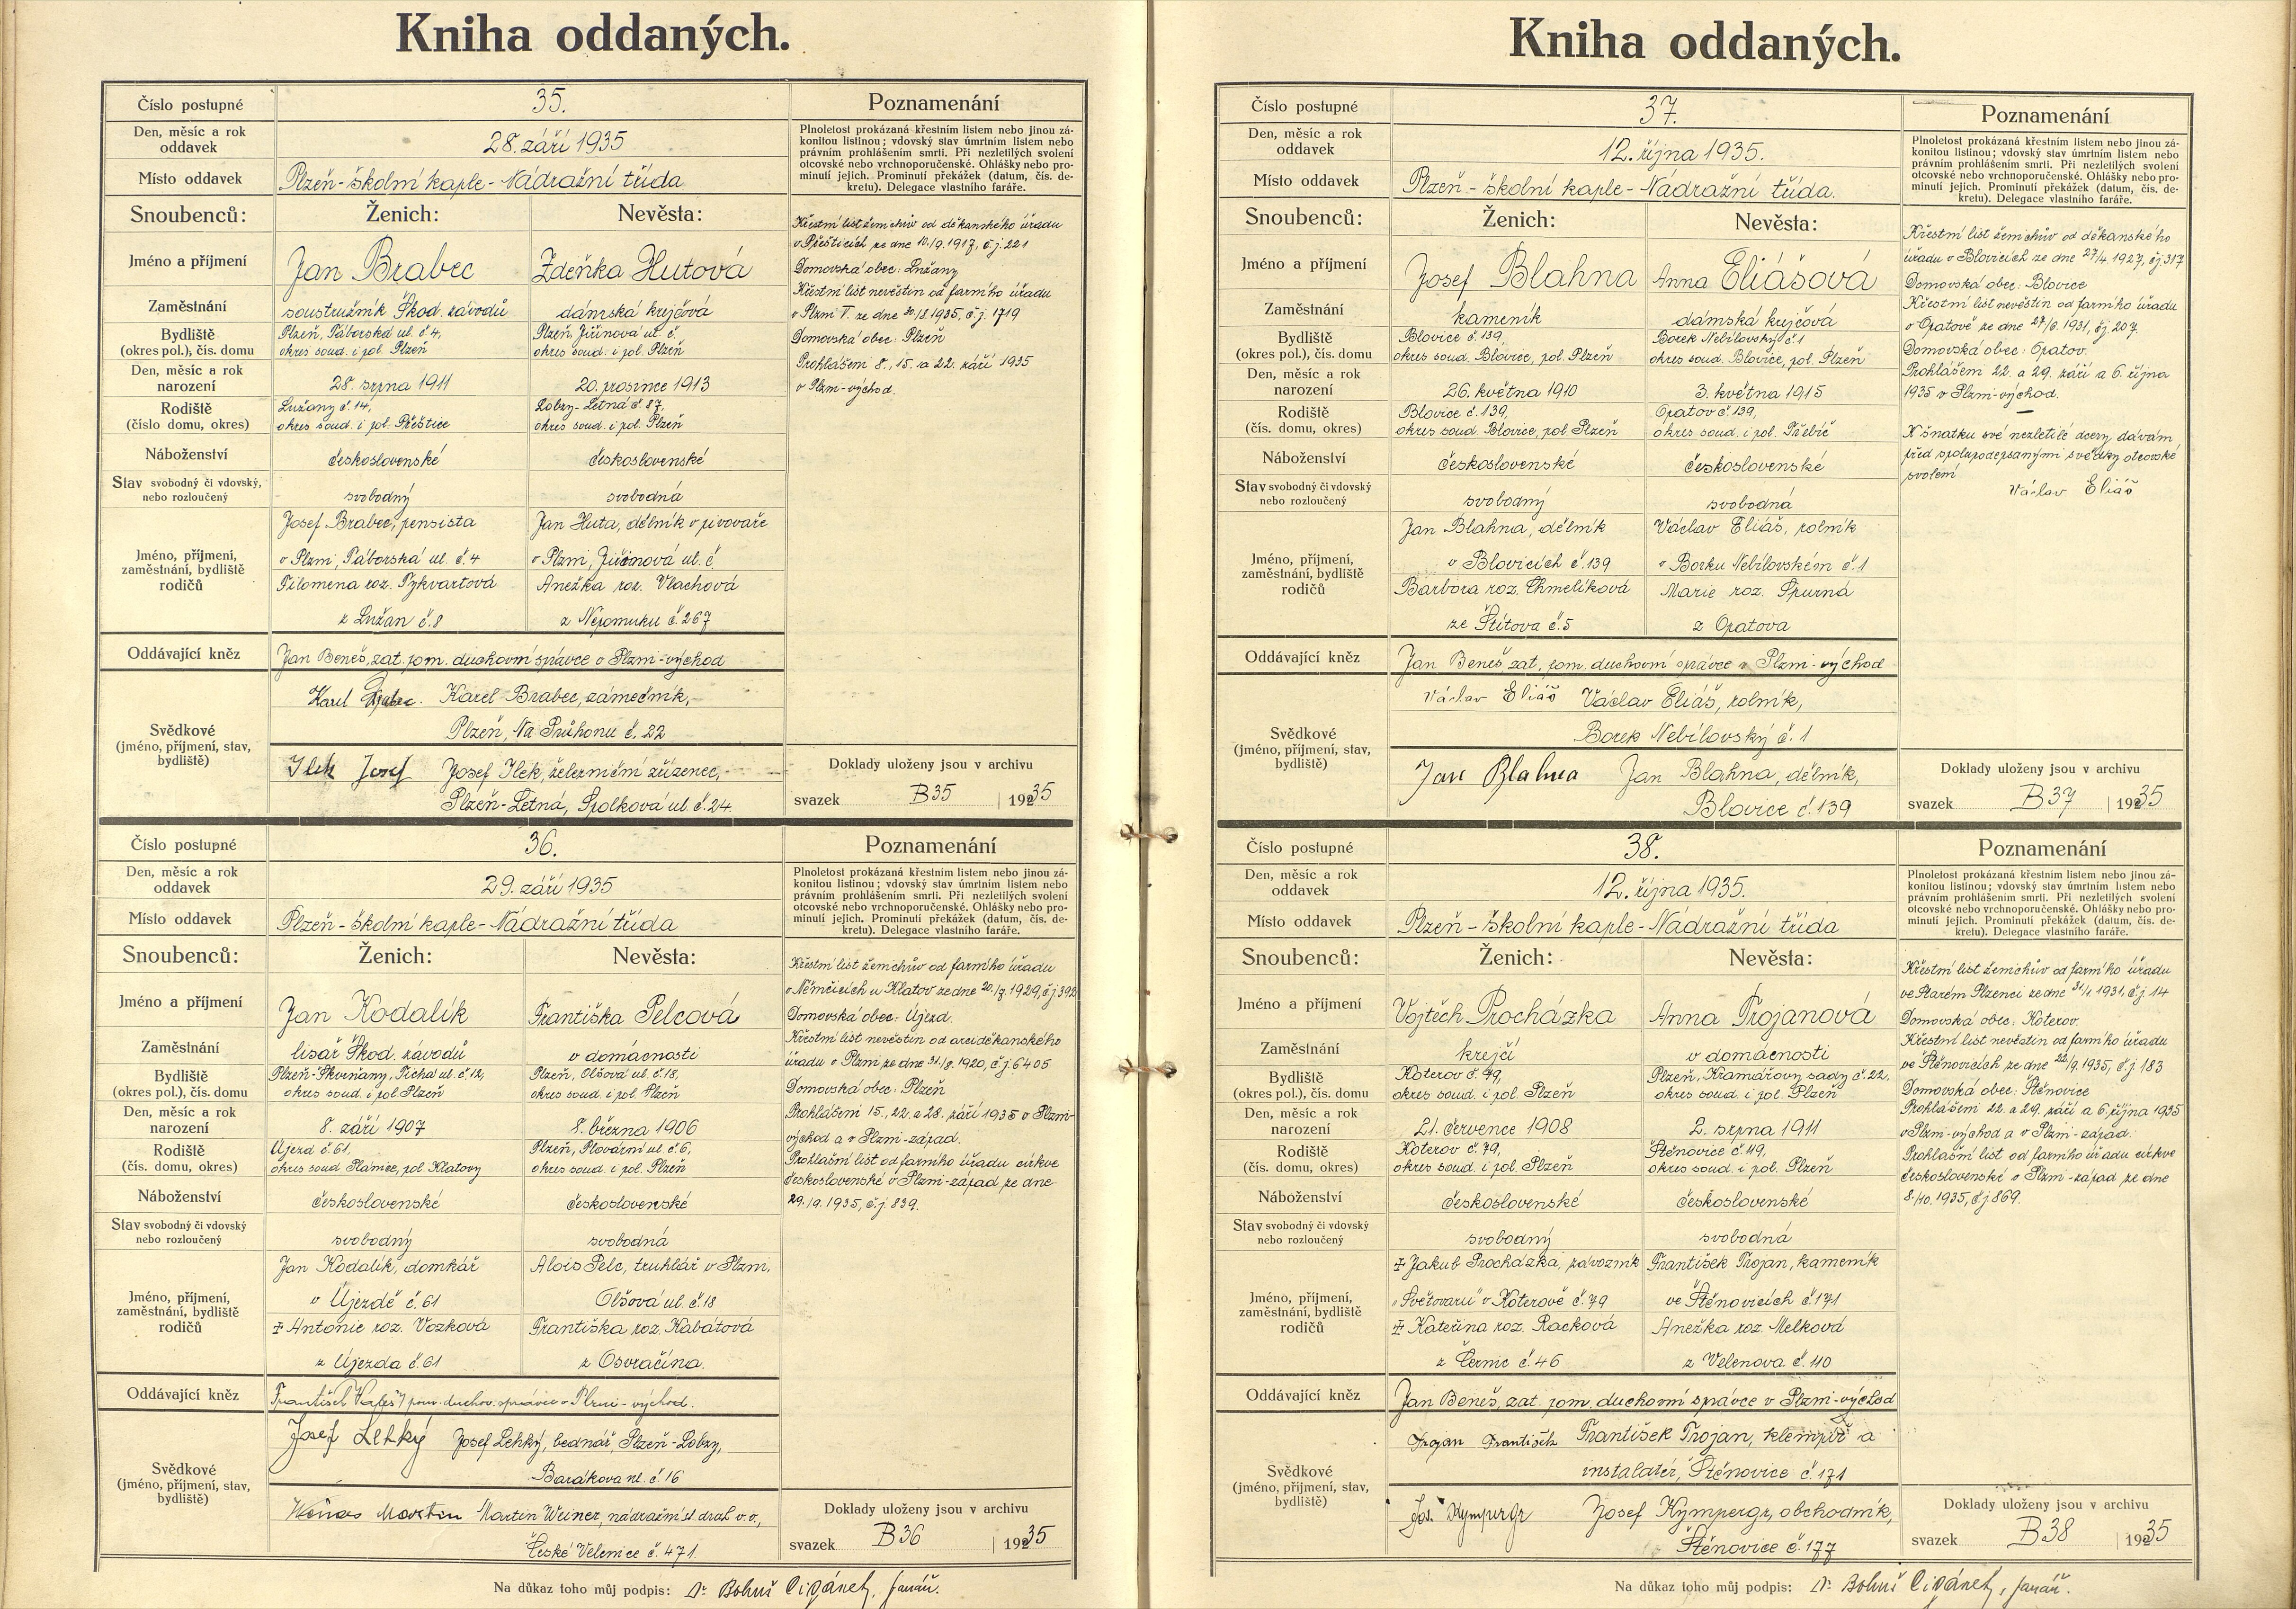 Kniha oddaných.
Číslo postupné 35. Poznamenání
Den, měsíc a rok oddavek 28. září 1935
Plnoletost prokázaná křestním listem nebo jinou zá-
konitou listinou; vdovský stav úmrtním listem nebo
právním prohlášením smrti. Při nezletilých svolení
otcovské nebo vrchnoporučenské. Ohlášky nebo pro-
minutí jejich. Prominutí překážek (datum, čís. de-
kretu). Delegace vlastního faráře.
Místo oddavek Plzeň - školní kaple - Nádražní třída
Snoubenců: Ženich: Nevěsta:
Jméno a příjmení Jan Brabec Zdeňka Hutová
Zaměstnání soustružník Škod. závodů dámská krejčová
Bydliště Plzeň, Táborská ul. č. 4, Plzeň, Jiřínova ul. č.
(okres pol.), čís. domu okres soud. i pol. Plzeň okres soud. i pol. Plzeň
Den, měsíc a rok narození 28. srpna 1911 20. prosince 1913
Rodiště Lužany č. 14, Lobzy-Letná č. 87,
(číslo domu, okres) okres soud. i pol. Přeštice okres soud. i pol. Plzeň
Náboženství československé československé
Stav svobodný či vdovský, nebo rozloučený svobodný svobodná
Jméno, příjmení, zaměstnání, bydliště rodičů
Josef Brabec, pensista Jan Huta, dělník v pivovaře
v Plzni, Táborská ul. č. 4 v Plzni, ul. č.
Filomena roz. Pykvartová Anežka roz. Vlachová
z Lužan č. 8 z Nepomuku č. 267
Oddávající kněz Jan Beneš, zat. pom. duchovní správce v Plzni-východ
Svědkové (jméno, příjmení, stav, bydliště)
Karel Brabec. Karel Brabec, zámečník,
Plzeň, Na Průhonu č. 22
Ilek Josef Josef Ilek, železniční zřízenec,
Plzeň-Letná, Spolková ul. č. 24.
Křestní list ženichův od děkanského úřadu
v Přešticích ze dne 10./9. 1917, č.j. 221
Domovská obec: Lužany
Křestní list nevěstin od farního úřadu
v Plzni V. ze dne 30/8. 1935, č.j. 1719
Domovská obec: Plzeň
Prohlášeni 8., 15. a 22. září 1935
v Plzni-východ.
Doklady uloženy jsou v archivu
svazek B35 1935
Číslo postupné 36. Poznamenání
Den, měsíc a rok oddavek 29. září 1935
Plnoletost prokázaná křestním listem nebo jinou zá-
konitou listinou; vdovský stav úmrtním listem nebo
právním prohlášením smrti. Při nezletilých svolení
otcovské nebo vrchnoporučenské. Ohlášky nebo pro-
minutí jejich. Prominutí překážek (datum, čís. de-
kretu). Delegace vlastního faráře.
Místo oddavek Plzeň - školní kaple - Nádražní třída
Snoubenců: Ženich: Nevěsta:
Jméno a příjmení Jan Kodalík Františka Pelcová
Zaměstnání lisař Škod. závodů v domácnosti
Bydliště Plzeň-Skvrňany, Tichá ul. č. 12, Plzeň, Olšová ul. č. 18,
(okres pol.), čís. domu okres soud. i pol Plzeň okres soud. i pol. Plzeň
Den, měsíc a rok narození 8. září 1907 8. března 1906
Rodiště Újezd č. 61, Plzeň, Plovární ul. č. 6,
(čís. domu, okres) okres soud Plánice, pol. Klatovy okres soud. i pol. Plzeň
Náboženství československé československé
Stav svobodný či vdovský nebo rozloučený svobodný svobodná
Jméno, příjmení, zaměstnání, bydliště rodičů
Jan Kodalík, domkář Alois Pelc, truhlář v Plzni,
v Újezdě č. 61 Olšová ul. č. 18
Antonie roz. Vozková Františka roz. Kabátová
z Újezda č. 61 z Osvračína.
Oddávající kněz František pom. duchov. správce v Plzni-východ.
Svědkové (jméno, příjmení, stav, bydliště)
Josef Lehký Josef Lehký, bednář, Plzeň-Lobzy,
Barákova ul. č. 16
Martin Martin Weiner, nádražní sl. drah v.v.,
České Velenice č. 471.
Křestní list ženichův od farního úřadu
v Němčicích u Klatov ze dne 20./7. 1929, č.j 392
Domovská obec: Újezd.
Křestní list nevěstin od arciděkanského
úřadu v Plzni ze dne 31./8. 1920, č.j. 6405
Domovská obec: Plzeň
Prohlášeni 15., 22. a 28. září 1935 v Plzni-
východ a v Plzni-západ.
Prohlašní list od farního úřadu církve
československé v Plzni-západ ze dne
29./9. 1935, č.j. 839.
Doklady uloženy jsou v archivu
svazek B36 1935
Na důkaz toho můj podpis: Dr. Bohuš Cigánek, farář.
Kniha oddaných.
Číslo postupné 37. Poznamenání
Den, měsíc a rok oddavek 12. října 1935.
Plnoletost prokázaná křestním listem nebo jinou zá-
konitou listinou; vdovský stav úmrtním listem nebo
právním prohlášením smrti. Při nezletilých svolení
otcovské nebo vrchnoporučenské. Ohlášky nebo pro-
minutí jejich. Prominutí překážek (datum, čís. de-
kretu). Delegace vlastního faráře.
Místo oddavek Plzeň - školní kaple - Nádražní třída.
Snoubenců: Ženich: Nevěsta:
Jméno a příjmení Josef Blahna Anna Eliášová
Zaměstnání kameník dámská krejčová
Bydliště Blovice č. 139, Borek Nebílovský č. 1
(okres pol.), čís. domu okres soud. Blovice, pol. Plzeň okres soud. Blovice, pol. Plzeň
Den, měsíc a rok narození 26. května 1910 3. května 1915
Rodiště Blovice č. 139, Opatov č. 139,
(čís. domu, okres) okres soud. Blovice, pol. Plzeň okres soud. i pol. Třebíč
Náboženství československé československé
Stav svobodný či vdovský nebo rozloučený svobodný svobodná
Jméno, příjmení, zaměstnání, bydliště rodičů
Jan Blahna, dělník Václav Eliáš, rolník
v Blovicích č. 139 v Borku Nebílovském č. 1
Barbora roz. Chmelíková Marie roz. Špurná
ze Štítova č. 5 z Opatova
Oddávající kněz Jan Beneš zat. pom. duchovní správce v Plzni-východ
Svědkové (jméno, příjmení, stav, bydliště)
Václav Eliáš Václav Eliáš, rolník,
Borek Nebílovský č. 1
Jan Blahna Jan Blahna, dělník,
Blovice č. 139
Křestní list ženichův od děkanského
úřadu v Blovicích ze dne 27/4. 1927, čj 317
Domovská obec: Blovice
Křestní list nevěstin od farního úřadu
v Opatově ze dne 27/6. 1931, čj 207.
Domovská obec: Opatov.
Prohlášeni 22. a 29. září a 6. října
1935 v Plzni-východ.
K sňatku své nezletilé dcery dávám
před spolupodepsanými svědky otcovské
svolení
Václav Eliáš
Doklady uloženy jsou v archivu
svazek B37 1935
Číslo postupné 38. Poznamenání
Den, měsíc a rok oddavek 12. října 1935.
Plnoletost prokázaná křestním listem nebo jinou zá-
konitou listinou; vdovský stav úmrtním listem nebo
právním prohlášením smrti. Při nezletilých svolení
otcovské nebo vrchnoporučenské. Ohlášky nebo pro-
minutí jejich. Prominutí překážek (datum, čís. de-
kretu). Delegace vlastního faráře.
Místo oddavek Plzeň - školní kaple - Nádražní třída
Snoubenců: Ženich: Nevěsta:
Jméno a příjmení Vojtěch Procházka Anna Trojanová
Zaměstnání krejčí v domácnosti
Bydliště Koterov č. 79, Plzeň, Kramářovy sady č. 22,
(okres pol.), čís. domu okres soud. i pol. Plzeň okres soud. i pol. Plzeň
Den, měsíc a rok narození 21. července 1908 2. srpna 1911
Rodiště Koterov č. 79, Štěnovice č. 49,
(čís. domu, okres) okres soud. i pol. Plzeň okres soud. i pol. Plzeň
Náboženství československé československé
Stav svobodný či vdovský nebo rozloučený svobodný svobodná
Jméno, příjmení, zaměstnání, bydliště rodičů
Jakub Procházka, závozník František Trojan, kameník
„Světovaru" v Koterově č. 79 ve Štěnovicích č. 171
Kateřina roz. Racková Anežka roz. Melková
z Černic č. 46 z Velenova č. 110
Oddávající kněz Jan Beneš, zat. pom. duchovní správce v Plzni-východ
Svědkové (jméno, příjmení, stav, bydliště)
Trojan František František Trojan, klempíř a
instalatér, Štěnovice č. 171
Jos. Kympergr Josef Kympergr, obchodník,
Štěnovice č. 177
Křestní list ženichův od farního úřadu
ve Starém Plzenci ze dne 31/1 1931, č.j. 14
Domovská obec: Koterov.
Křestní list nevěstin od farního úřadu
ve Štěnovicích ze dne 22/9. 1935, č.j. 183
Domovská obec: Štěnovice
Prohlášeni 22. a 29. září a 6. října 1935
v Plzni-východ a v Plzni-západ.
Prohlašní list od farního úřadu církve
československé v Plzni-západ ze dne
8./10. 1935, č.j 869.
Doklady uloženy jsou v archivu
svazek B38 1935
Na důkaz toho můj podpis: Dr. Bohuš Cigánek, farář.